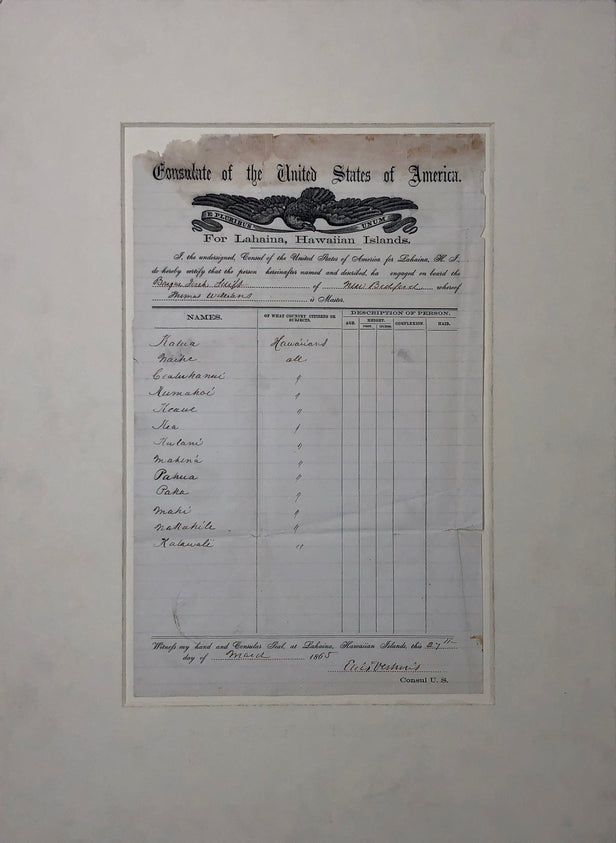 Consulate of the United States of America.
E PLURIBUS UNUM
For Lahaina, Hawaiian Islands.
I, the undersigned, Consul of the United States of America for Lahaina, H. I.,
do hereby certify that the person hereinafter named and described, ha engaged on board the
Barque of New Bedford whereof
Thomas Williams is Master.
NAMES. OF WHAT COUNTRY CITIZENS OR SUBJECTS. DESCRIPTION OF PERSON.
AGE. HEIGHT. FEET. INCHES. COMPLEXION. HAIR.
Kalua Hawaiians
Naihe all
"
Kumahoi "
Keawe "
Kea "
Kulani "
Mahina "
Pahua "
Paka "
Mahi "
Nakahili "
Kalawali "
Witness my hand and Consular Seal, at Lahaina, Hawaiian Islands, this 27th
day of March 1865
Consul U. S.